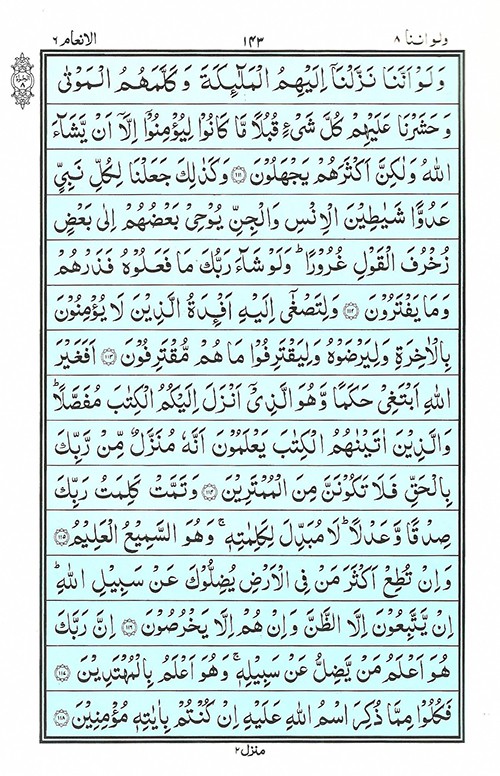 الانعام ٦ ١٤٣ ولو اننا ٨
وَلَوْ اَنَّنَا نَزَّلْنَاۤ اِلَيْهِمُ الْمَلٰٓئِكَةَ وَكَلَّمَهُمُ الْمَوْتٰى
وَحَشَرْنَا عَلَيْهِمْ كُلَّ شَىْءٍ قُبُلًا مَّا كَانُوْا لِيُؤْمِنُوْۤا اِلَّاۤ اَنْ يَّشَآءَ
اللّٰهُ وَلٰكِنَّ اَكْثَرَهُمْ يَجْهَلُوْنَ ﴿١١١﴾ وَكَذٰلِكَ جَعَلْنَا لِكُلِّ نَبِىٍّ
عَدُوًّا شَيٰطِيْنَ الْاِنْسِ وَالْجِنِّ يُوْحِىْ بَعْضُهُمْ اِلٰى بَعْضٍ
زُخْرُفَ الْقَوْلِ غُرُوْرًا ؕ وَلَوْ شَآءَ رَبُّكَ مَا فَعَلُوْهُ فَذَرْهُمْ
وَمَا يَفْتَرُوْنَ ﴿١١٢﴾ وَلِتَصْغٰٓى اِلَيْهِ اَفْـِٕدَةُ الَّذِيْنَ لَا يُؤْمِنُوْنَ
بِالْاٰخِرَةِ وَلِيَرْضَوْهُ وَلِيَقْتَرِفُوْا مَا هُمْ مُّقْتَرِفُوْنَ ﴿١١٣﴾ اَفَغَيْرَ
اللّٰهِ اَبْتَغِىْ حَكَمًا وَّهُوَ الَّذِىْۤ اَنْزَلَ اِلَيْكُمُ الْكِتٰبَ مُفَصَّلًا ؕ
وَالَّذِيْنَ اٰتَيْنٰهُمُ الْكِتٰبَ يَعْلَمُوْنَ اَنَّهٗ مُنَزَّلٌ مِّنْ رَّبِّكَ
بِالْحَقِّ فَلَا تَكُوْنَنَّ مِنَ الْمُمْتَرِيْنَ ﴿١١٤﴾ وَتَمَّتْ كَلِمَتُ رَبِّكَ
صِدْقًا وَّعَدْلًا ؕ لَا مُبَدِّلَ لِكَلِمٰتِهٖ ۚ وَهُوَ السَّمِيْعُ الْعَلِيْمُ ﴿١١٥﴾
وَاِنْ تُطِعْ اَكْثَرَ مَنْ فِى الْاَرْضِ يُضِلُّوْكَ عَنْ سَبِيْلِ اللّٰهِ ؕ
اِنْ يَّتَّبِعُوْنَ اِلَّا الظَّنَّ وَاِنْ هُمْ اِلَّا يَخْرُصُوْنَ ﴿١١٦﴾ اِنَّ رَبَّكَ
هُوَ اَعْلَمُ مَنْ يَّضِلُّ عَنْ سَبِيْلِهٖ ۚ وَهُوَ اَعْلَمُ بِالْمُهْتَدِيْنَ ﴿١١٧﴾
فَكُلُوْا مِمَّا ذُكِرَ اسْمُ اللّٰهِ عَلَيْهِ اِنْ كُنْتُمْ بِاٰيٰتِهٖ مُؤْمِنِيْنَ ﴿١١٨﴾
منزل ٢